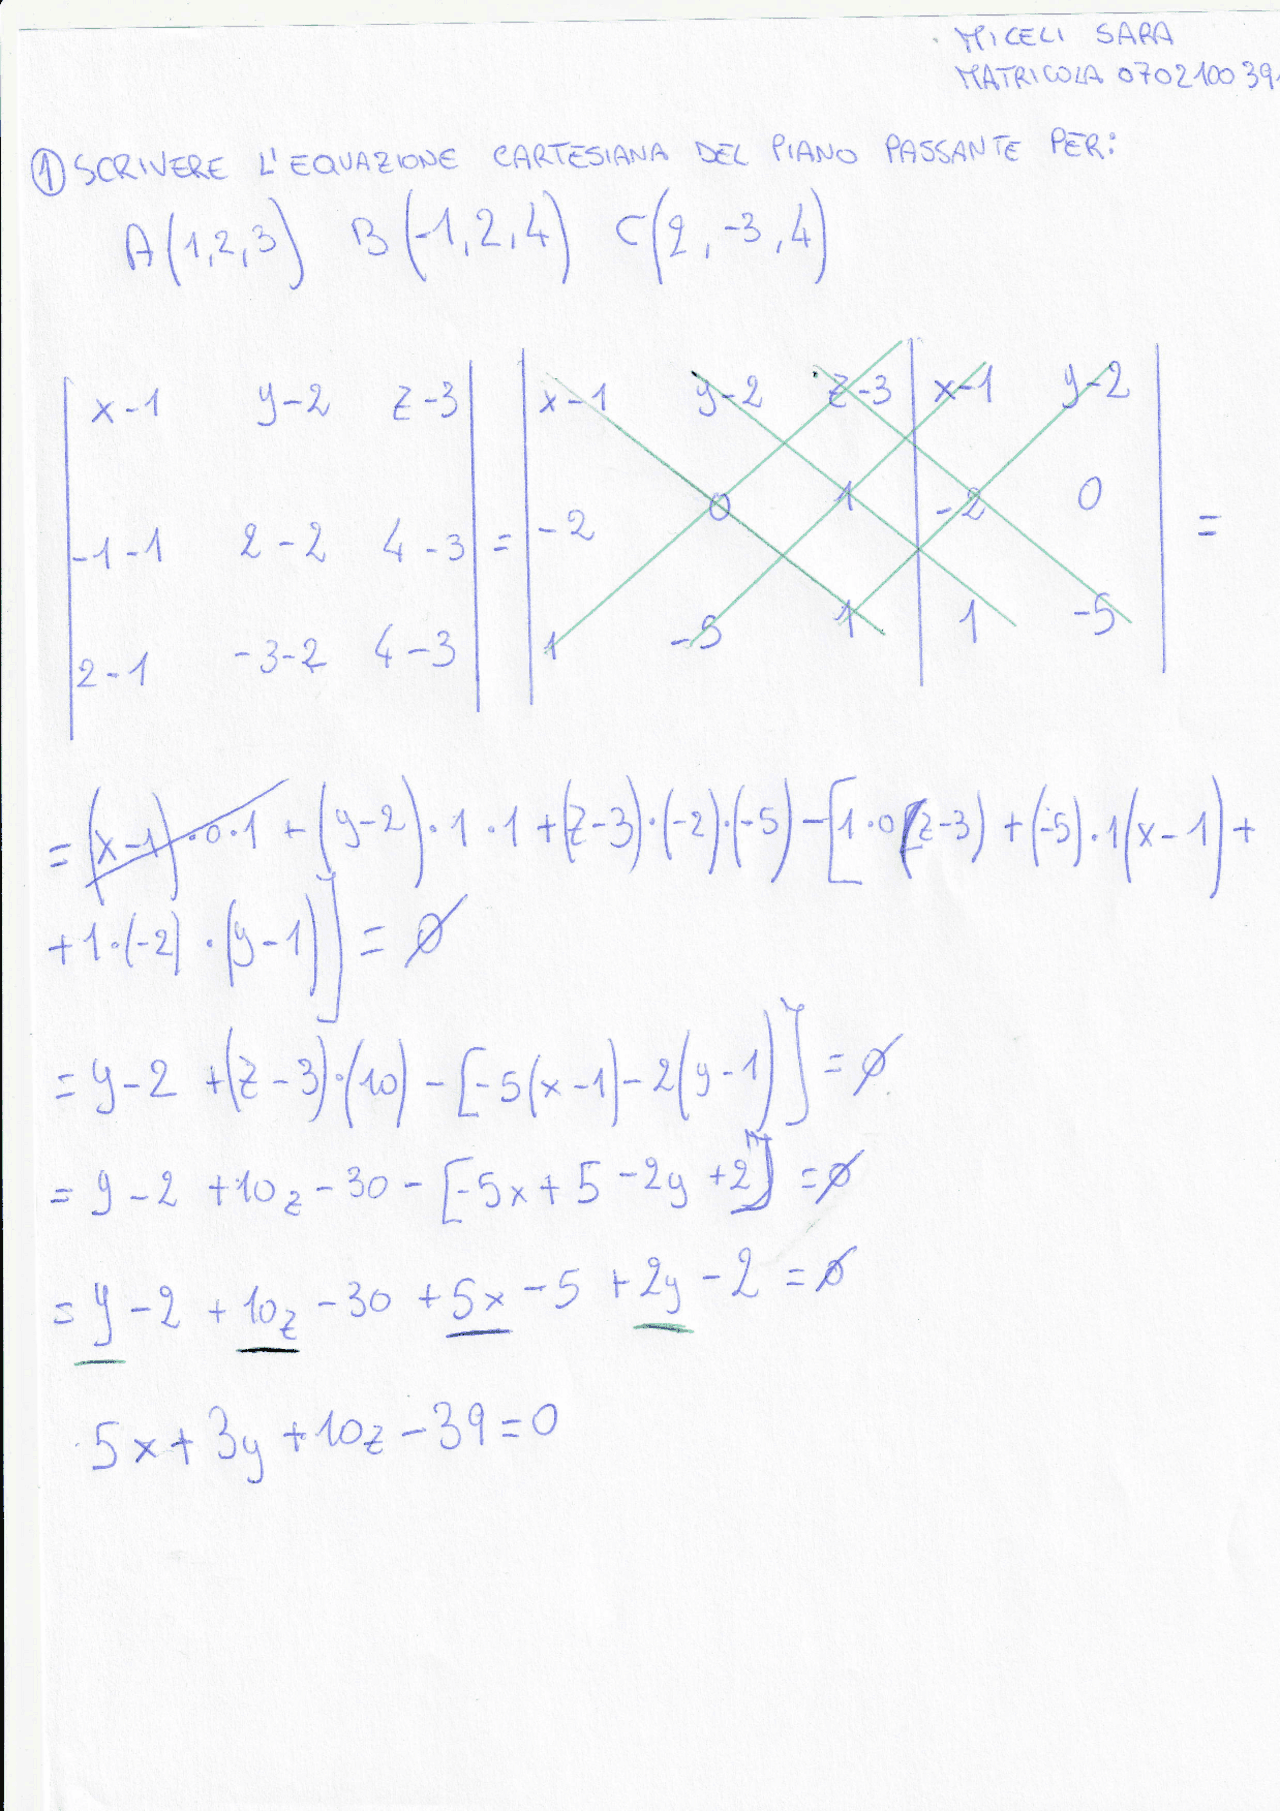 MICELI SARA
MATRICOLA 070210039
① SCRIVERE L'EQUAZIONE CARTESIANA DEL PIANO PASSANTE PER:
A(1,2,3) B(-1,2,4) C(2,-3,4)
| x-1 y-2 z-3 | = | x-1 y-2 z-3 | x-1 y-2 | =
| -1-1 2-2 4-3 | | -2 0 1 | -2 0 |
| 2-1 -3-2 4-3 | | 1 -5 1 | 1 -5 |
= (x-1)·0·1 + (y-2)·1·1 + (z-3)·(-2)·(-5) - [1·0(z-3) + (-5)·1(x-1) +
+1·(-2)·(y-1)] = 0
= y-2 + (z-3)·(10) - [-5(x-1) - 2(y-1)] = 0
= y-2 + 10z - 30 - [-5x + 5 - 2y + 2] = 0
= y - 2 + 10z - 30 + 5x - 5 + 2y - 2 = 0
5x + 3y + 10z - 39 = 0